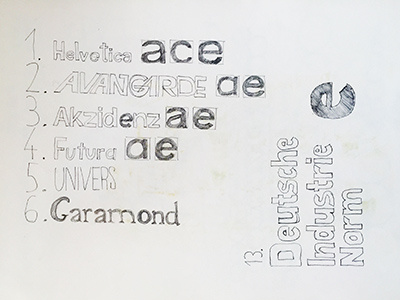 1. Helvetica ace
2. AVANGARDE ae
3. Akzidenz ae
4. Futura ae
5. UNIVERS
6. Garamond
e
13. Deutsche
Industrie
Norm